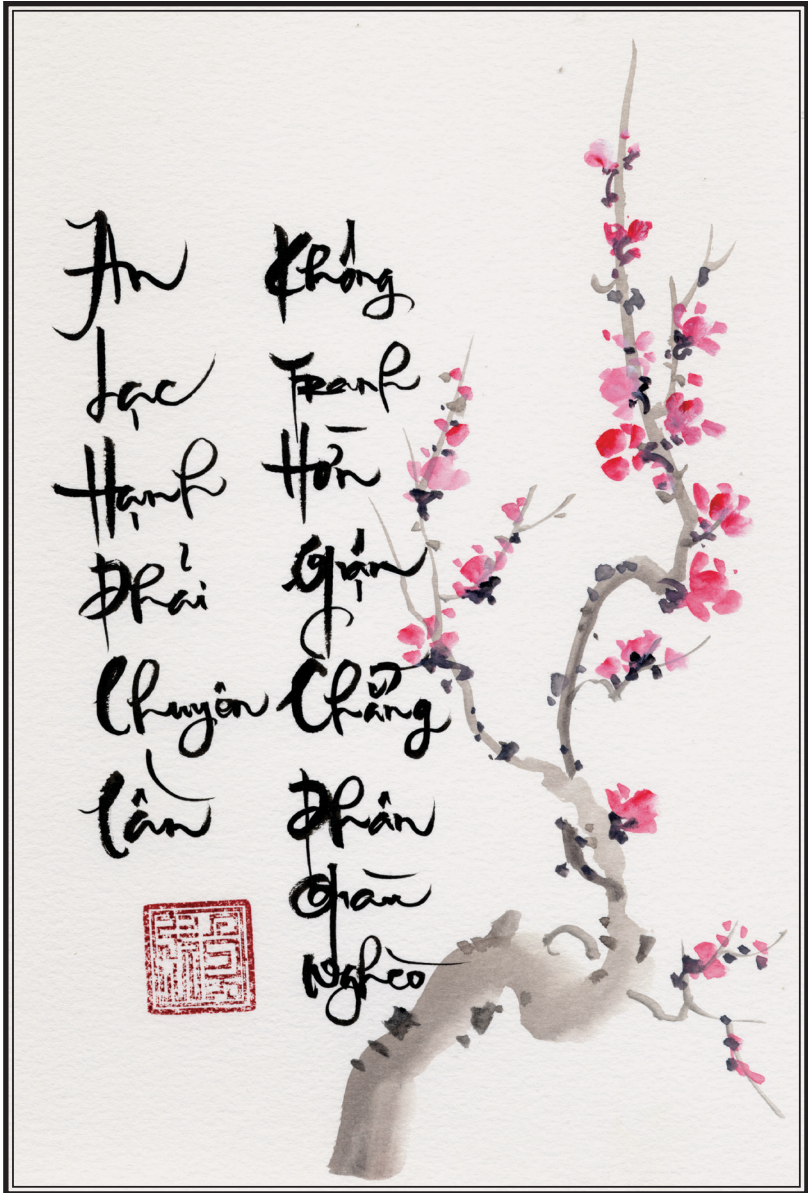 An Lạc Hạnh Phải Chuyên Cần
Không Tranh Hờn Giận Chẳng Phân Giàu Nghèo